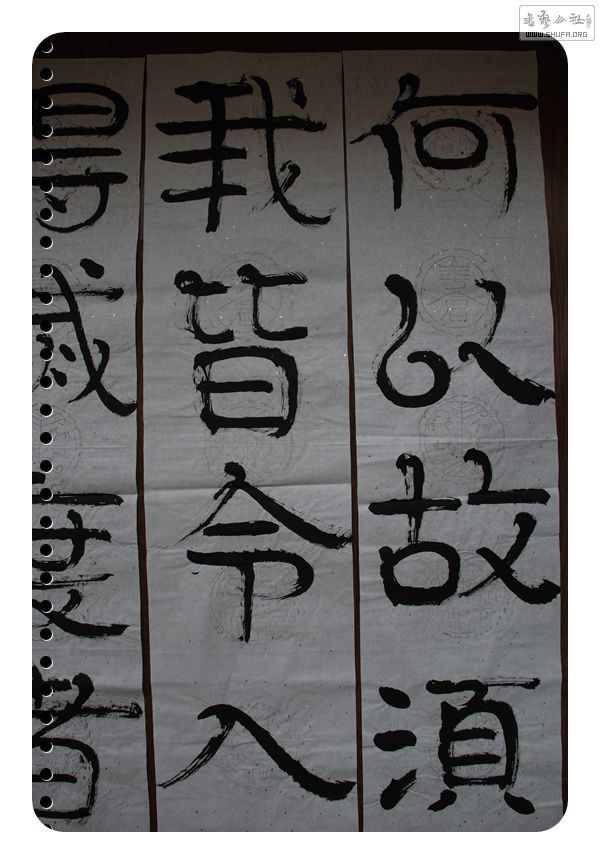 書藝公社
WWW.SHUFA.ORG
何以故須
我皆令入
得滅度者